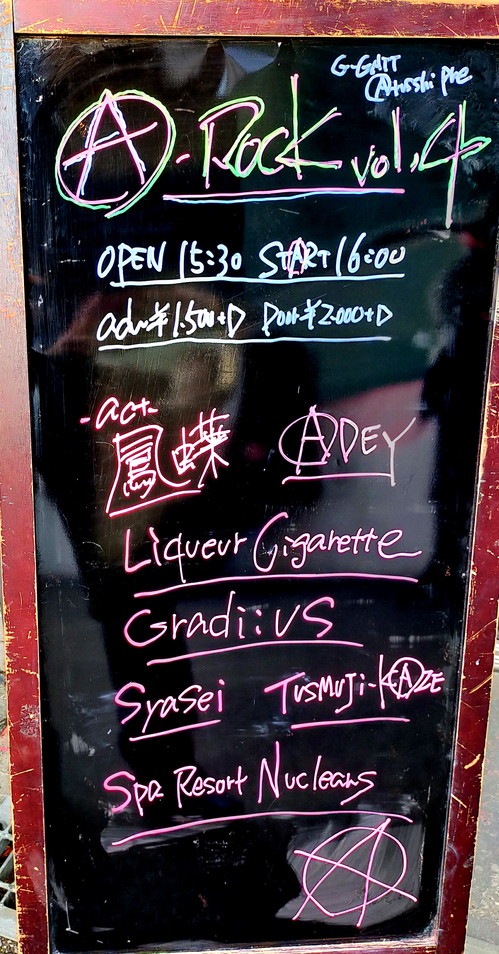 G-GATT
Ⓐtusshi pre
Ⓐ-Rock vol.4
OPEN 15:30 START 16:00
adv¥1.500+D Door¥2.000+D
-act-
鳳蝶 ⒶDEY
Liqueur Cigarette
Gradi:us
Syasei TusMuji-KⒶZE
Spa Resort Nucleans
Ⓐ